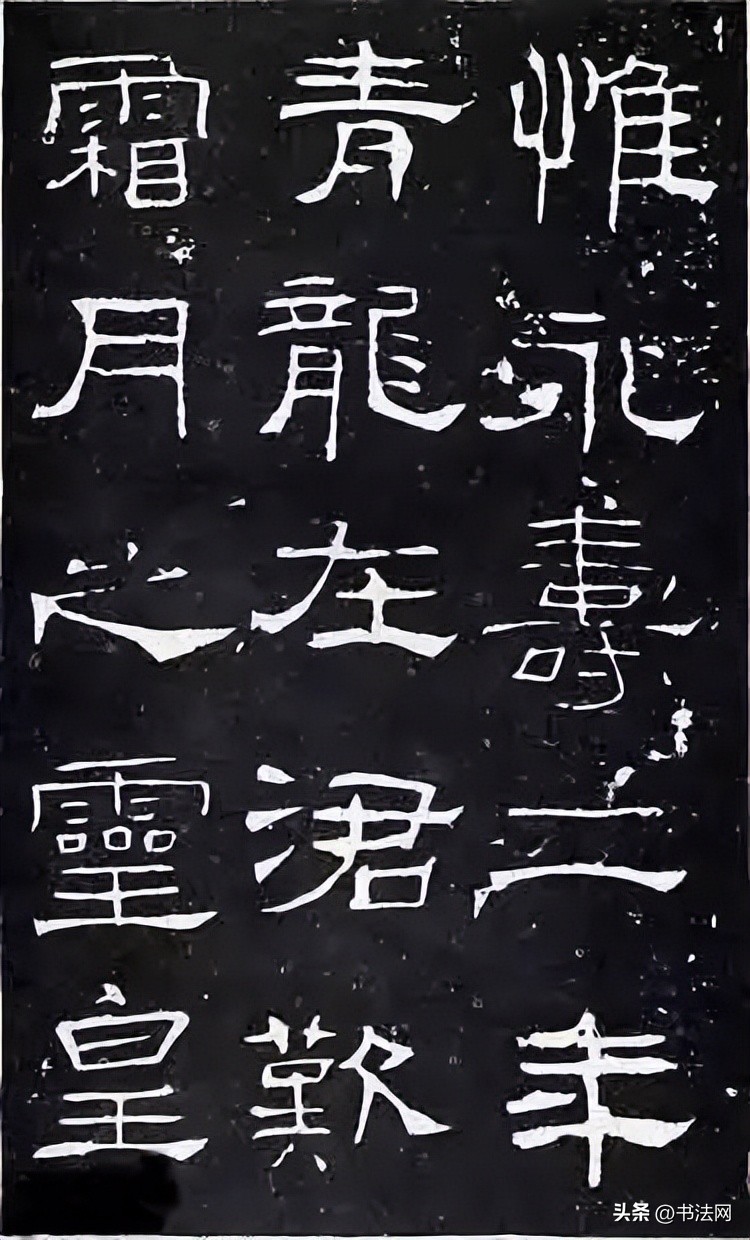 惟永壽二年
青龍在涒歎
霜月之靈皇
头条 @书法网